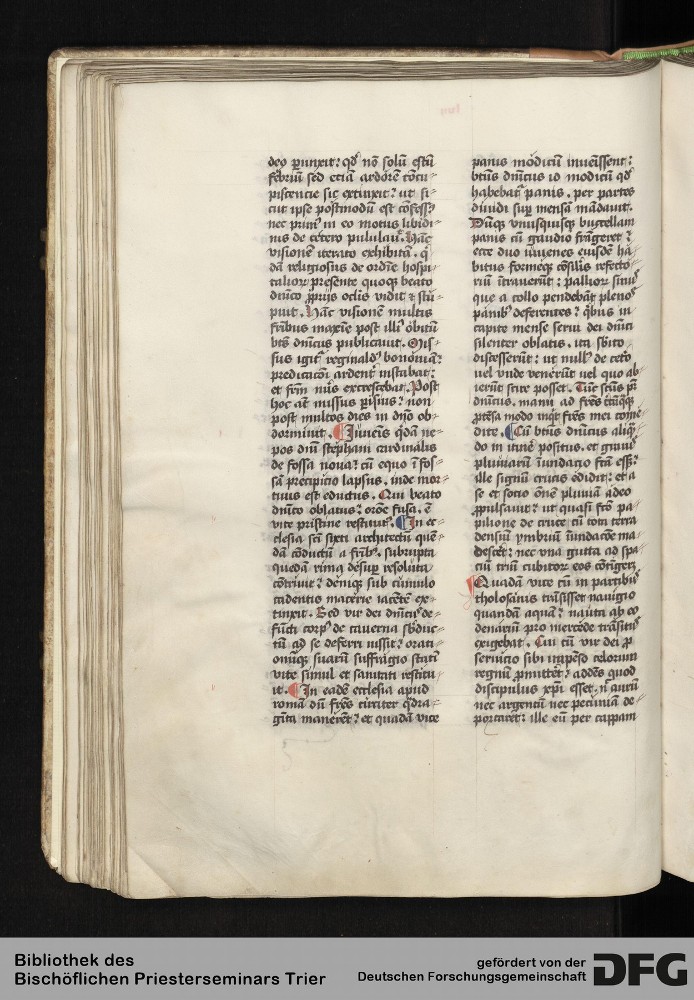 dey p̄unxit: qd̕ nō solū estū
febriū sed etiā ardorē cōcu-
piscencie sic extinxit: ut si-
cut ipse postmodū est cōfess9
nec prim9 in eo motus libidi-
nis de cetero pululauit. Hāc
visionē iterato exhibitā. q̄-
dā religiosus de ordīe hospi-
talioꝝ presente quoqꝫ beato
dn̄ico ꝓprijs oclis vidit ⁊ stu-
puit. Hāc visionē multis
fr̄ibus maxīe post illi9 obitū
bt̄s dn̄icus publicauit. Mis-
sus igit̄ reginald9 bononiā:
predicacōi ardent̄ instabat:
et fr̄m nūs excrescebat. Post
hoc at̄ missus p̄isius: non
post multos dies in dn̄o ob-
dormiuit. Iuuenis q̄dā ne-
pos dn̄i stephani cardinalis
de fossa noua: cū equo ī fos-
sā precipicio lapsus. inde mor-
tuus est eductus. Qui beato
dn̄ico oblatus: orōe fusa. ē
vite pristine restitut9. In ec-
clesia sc̄i sixti architectū quē-
dā cōductū a fr̄ib9. subrupta
quedā rima desup̄ resoluta
cōtriuit: deniqꝫ sub cumulo
cadentis macerie iacētē ex-
tinxit. Sed vir dei dn̄icus de-
fūcti corp9 de cauerna sb̄duc-
tū ad se deferri iussit: orati-
onūqꝫ suarū suffragio statī
vite simul et sanitati restitu-
it. In eadē ecclesia apud
romā dū fr̄es circiter q̄dra-
gīta manerēt: et quadā vice
panis modicū inuenissent:
bt̄us dn̄icus id modicū qd̕
habebat̄ panis. per partes
diuidi sup̄ mensā mādauit.
Dūqꝫ vnusquisqꝫ buccellam
panis cū gaudio frāgeret:
ecce duo iuuenes eiusdē ha-
bitus formeqꝫ cōsilīs refecto-
riū ītrauerūt: palliorꝫ sinus
que a collo pendebāt plenos
panib9 deferentes: qb̄us in
capite mense serui dei dn̄ici
silenter oblatis. ita sb̄ito
discesserūt: ut null9 de cet̄o
vel vnde venerūt vel quo ab-
ierūt scire posset. Tūc sc̄us pr̄
dn̄icus. manu ad fr̄es circūqꝫ
ꝓtēsa modo inqt̄ fr̄es mei come-
dite. Cū bt̄us dn̄icus aliqn̄-
do in itin̄e positus. et grauis
pluuiarū īundacio fc̄a esset:
ille signū crucis edidit: et a
se et socio ōnē pluuiā adeo
ꝓpulsauit: ut quasi fc̄o pa-
pilione de cruce cū tota terra
densiū ymbriū īundacōe ma-
desc̄et: nec vna gutta ad spa-
ciū triū cubitorꝫ eos cōtīgeret.
Quadā vice cū in partib9
tholosanis trāsisset nauigio
quandā aquā: nauta ab eo
denariū pro mercede trāsitus
exigebat. Cui cū vir dei p̄
seruicio sibi impēso celorum
regnū promitteret: addēs quod
discipulus xp̄i esset. n̄ aurū
nec argentū nec pecuniā de-
portaret: ille eū per cappam
Bibliothek des
Bischöflichen Priesterseminars Trier
gefördert von der
Deutschen Forschungsgemeinschaft
DFG